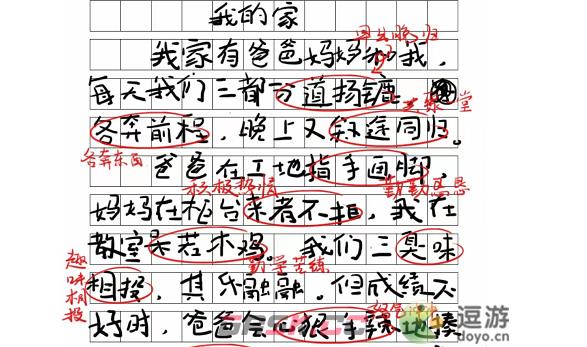 我的家
早出晚归
我家有爸爸妈妈和我，
每天我们三都分道扬镳，
聚一堂
各奔前程，晚上又殊途同归。
各奔东西
爸爸在工地指手画脚，
积极热情 勤勤恳恳
妈妈在柜台来者不拒，我在
教室呆若木鸡。我们三臭味
趣味相投
勤学苦练
相投，其乐融融。但成绩不
好时，爸爸会心狠手辣地揍
逗游
doyo.cn